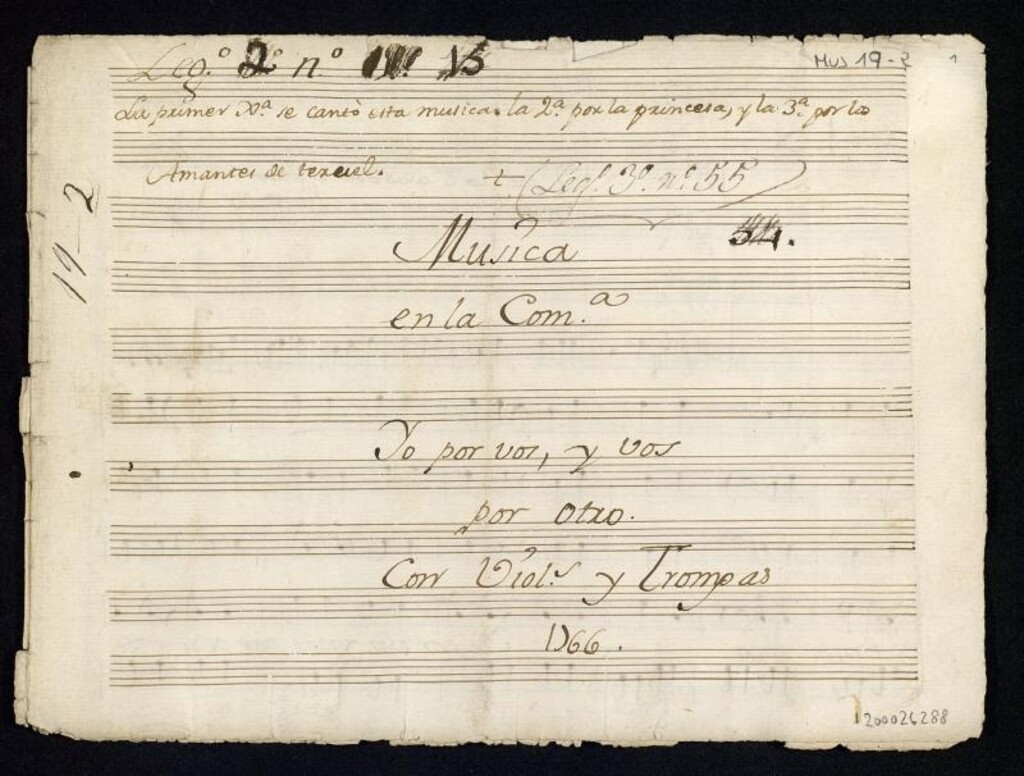 Leg.º 2º n.º 15
Mus 19-2
1
La primer Xª. se cantò esta musica. la 2ª. por la princesa, y la 3ª. por los
Amantes de teruel.
+ (Legº. 3º. nº. 55)
19-2
Musica
en la Com.ª
Yo por vos, y vos
por otro.
Con Viol.s y Trompas
1766.
1200026288